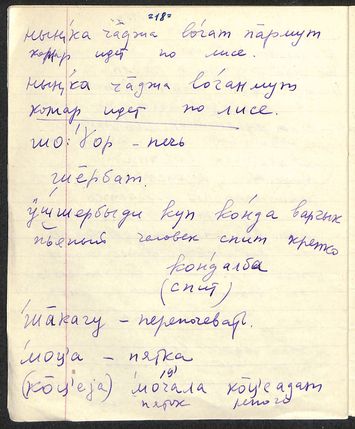 -18-
ныӊка ча̄джа во́ґат па̄рмут
комар идет по лисе.
ныӊка ча̄джа во́ґанмут
комар идет по лисе.
шо:ґор – печь
шёрбат.
ӱшшербыди куп ко́нда варґык
пьяный человек спит крепко
кондалба
(спит)
ша̄кагу – переночевать.
моц'а – пятка
(ко̄ц'еja) моц'ала ко̄ц'еадат
пяток много